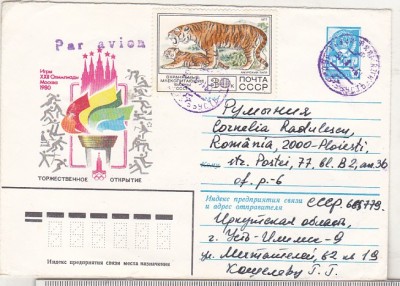 Par avion
Игры
XXII Олимпиады
Москва
1980
ТОРЖЕСТВЕННОЕ ОТКРЫТИЕ
1977
30к
ПОЧТА
СССР
Румыния
Cornelia Radulescu,
România, 2000-Ploiesti
Кому
str. Postei, 77, bl. B2, ap. 36
of. p.-6
Индекс предприятия связи
и адрес отправителя
СССР 665779.
Иркутская область,
г. Усть-Илимск-9
ул. Мечтателей, 62 кв 19
Кощелеву Г. Г.
Индекс предприятия связи места назначения